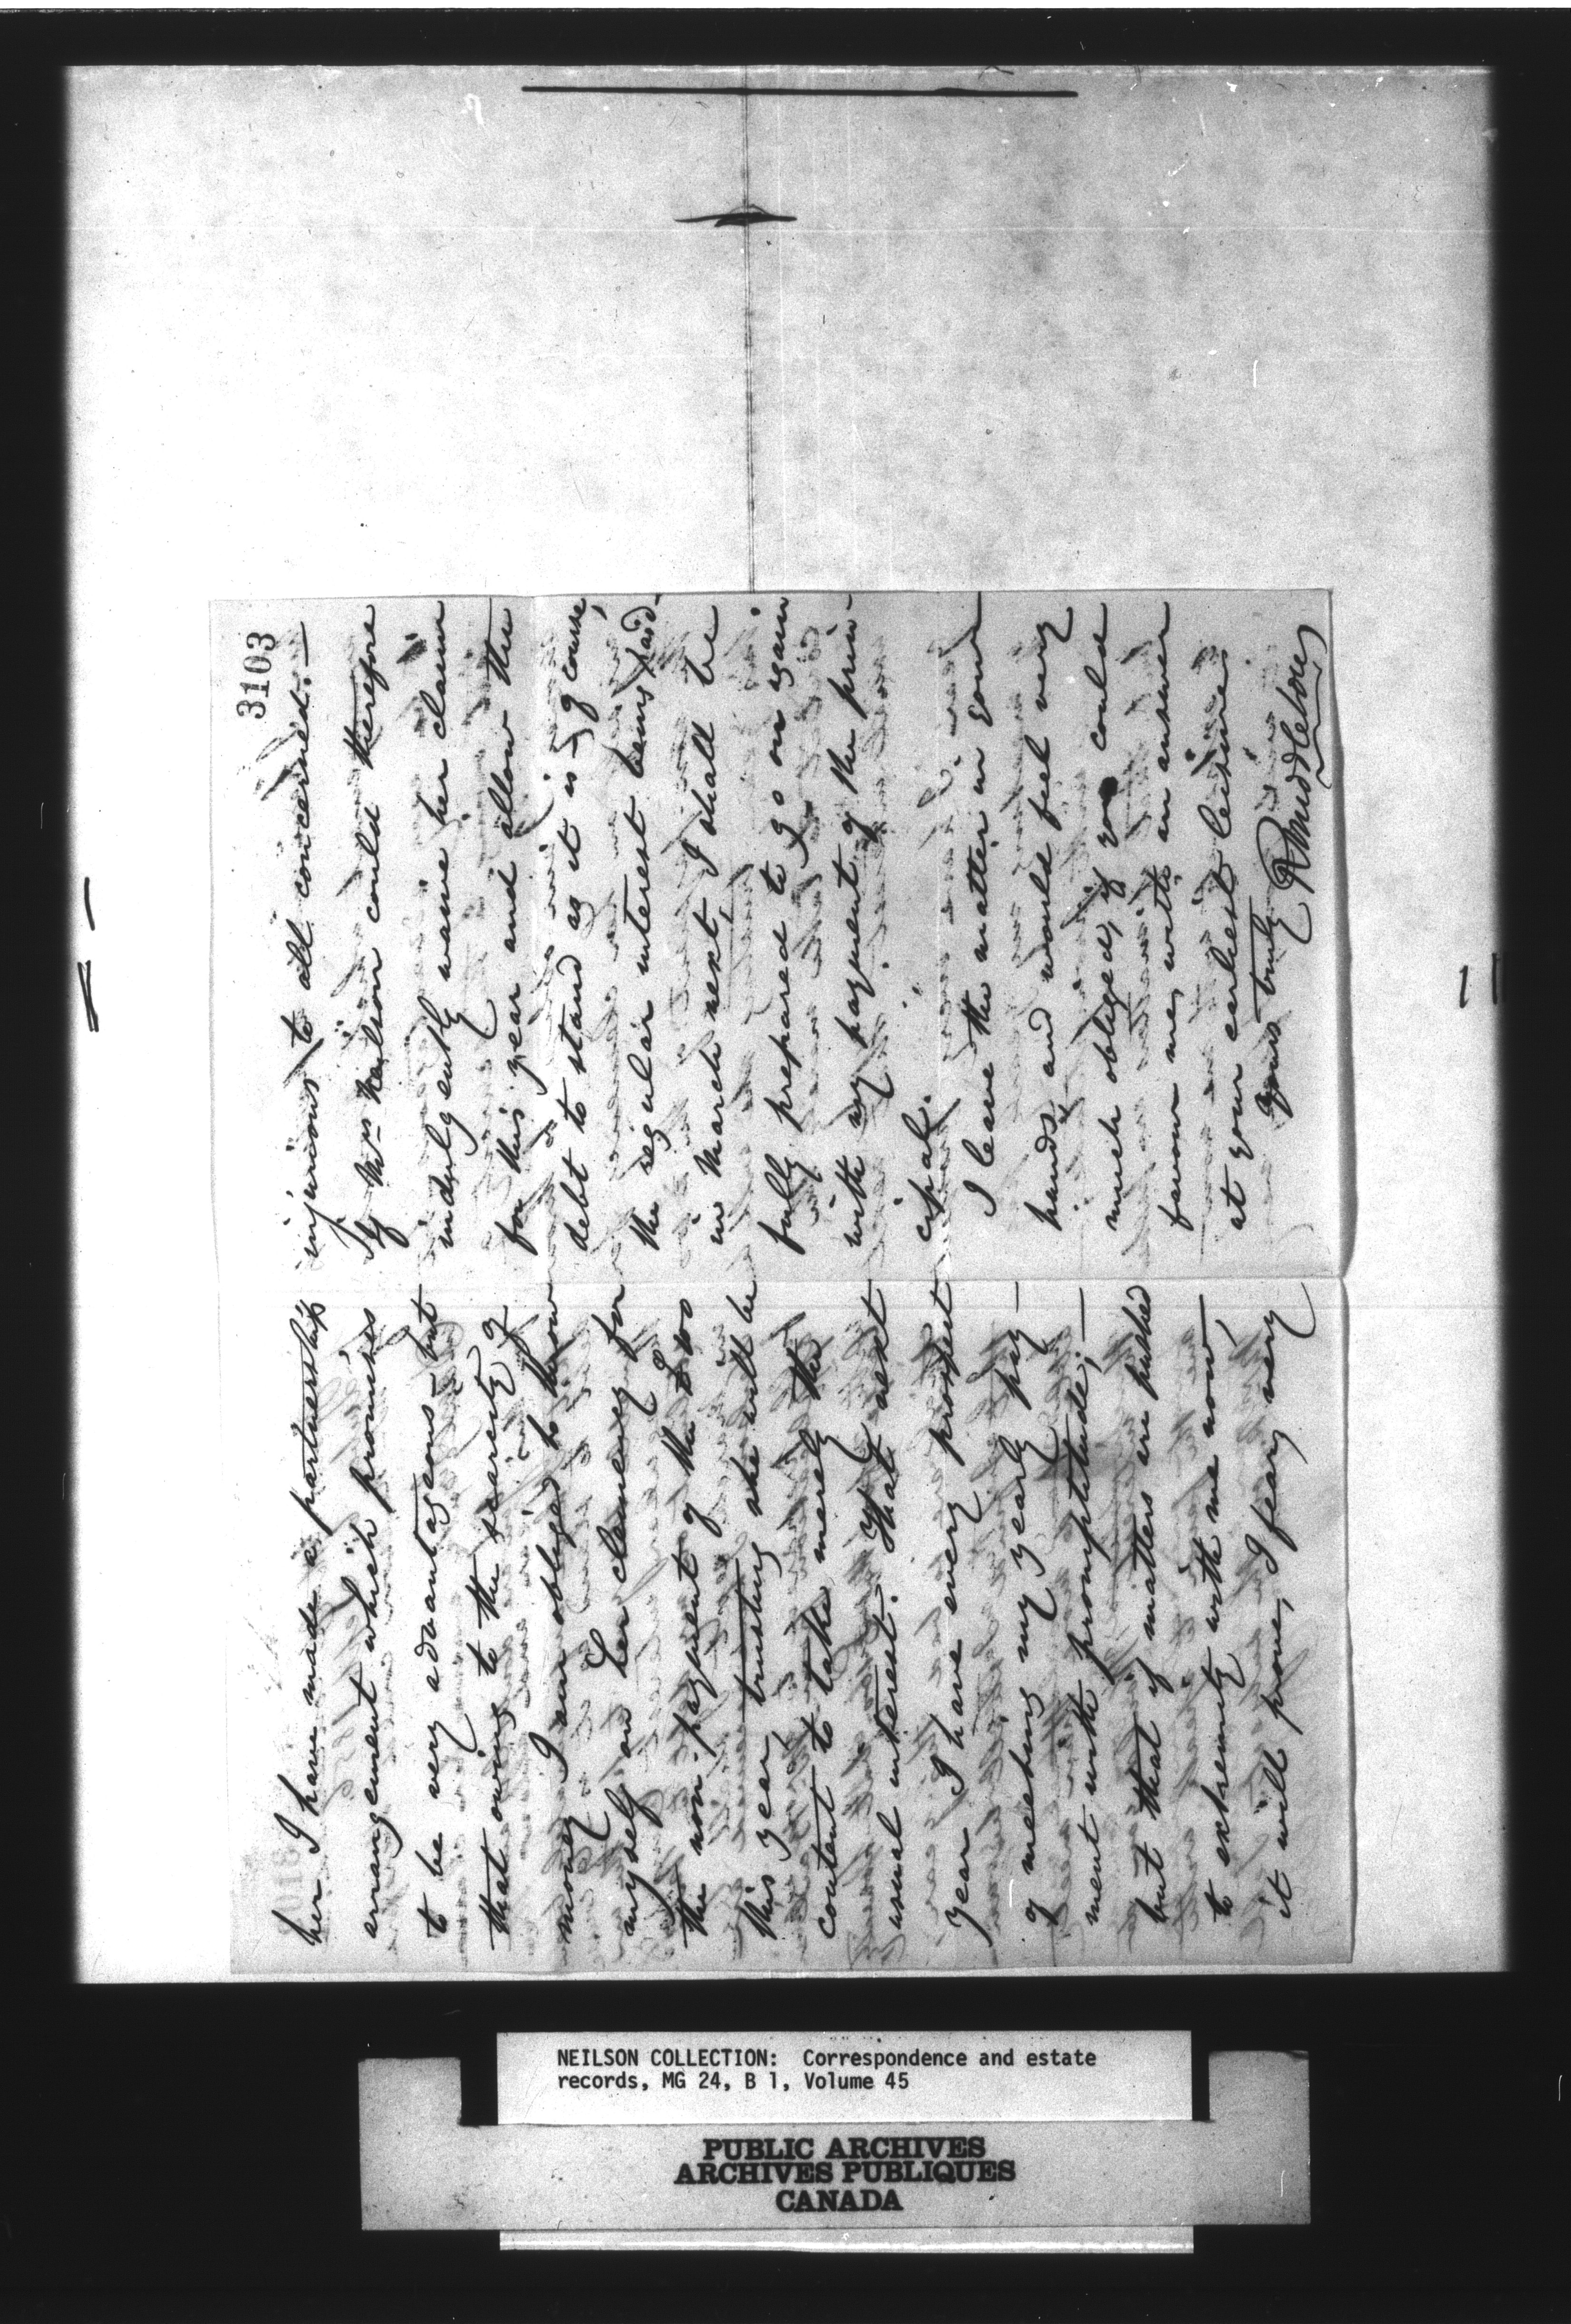 her I have made a partnership
arrangement which promises
to be very advantageous - but
that owing to the scarcity of
money I am obliged to throw
myself on her clemency for
the non payment of the £100
this year, trusting she will be
content to take merely the
usual interest. That next
year I have every prospect
of meeting my yearly pay-
ment with promptitude; —
but that if matters are pushed
to extremity with me now,
it will prove, I fear, very
3103
injurious to all concerned. —
If Mrs Neilson could therefore
indulgently waive her claim
for this year and allow the
debt to stand as it is - of course,
the regular interest being paid -
in March next, I shall be
fully prepared to go on again
with my payment of the prin-
cipal.
I leave the matter in your
hands and would feel very
much obliged, if you could
favour me, with an answer
at your earliest leisure.
Yours truly
R Middleton
NEILSON COLLECTION: Correspondence and estate
records, MG 24, B 1, Volume 45
PUBLIC ARCHIVES
ARCHIVES PUBLIQUES
CANADA